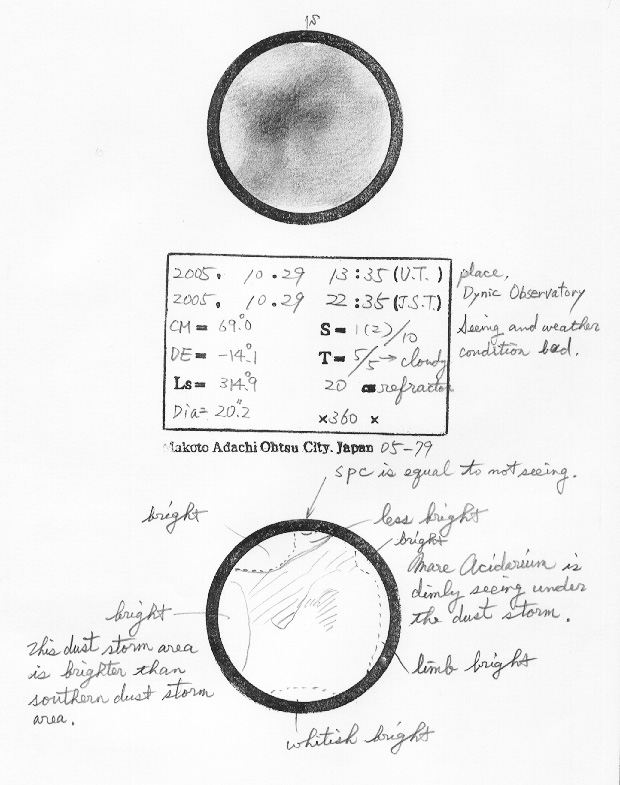 15
2005. 10.29 13:35 (U.T.)
2005. 10.29 22:35 (J.S.T)
CM= 69.°0 S= 1(2)/10
DE= -14.°1 T= 5/5 → cloudy
Ls= 314.°9 20 refractor
Dia= 20."2 ×360 ×
place,
Dynic Observatory
Seeing and weather
condition bad.
Makoto Adachi Ohtsu City. Japan 05-79
spc is equal to not seeing.
bright
less bright
bright
Mare Acidarium is
dimly seeing under
the dust storm.
bright
This dust storm area
is brighter than
southern dust storm
area.
limb bright
whitish bright